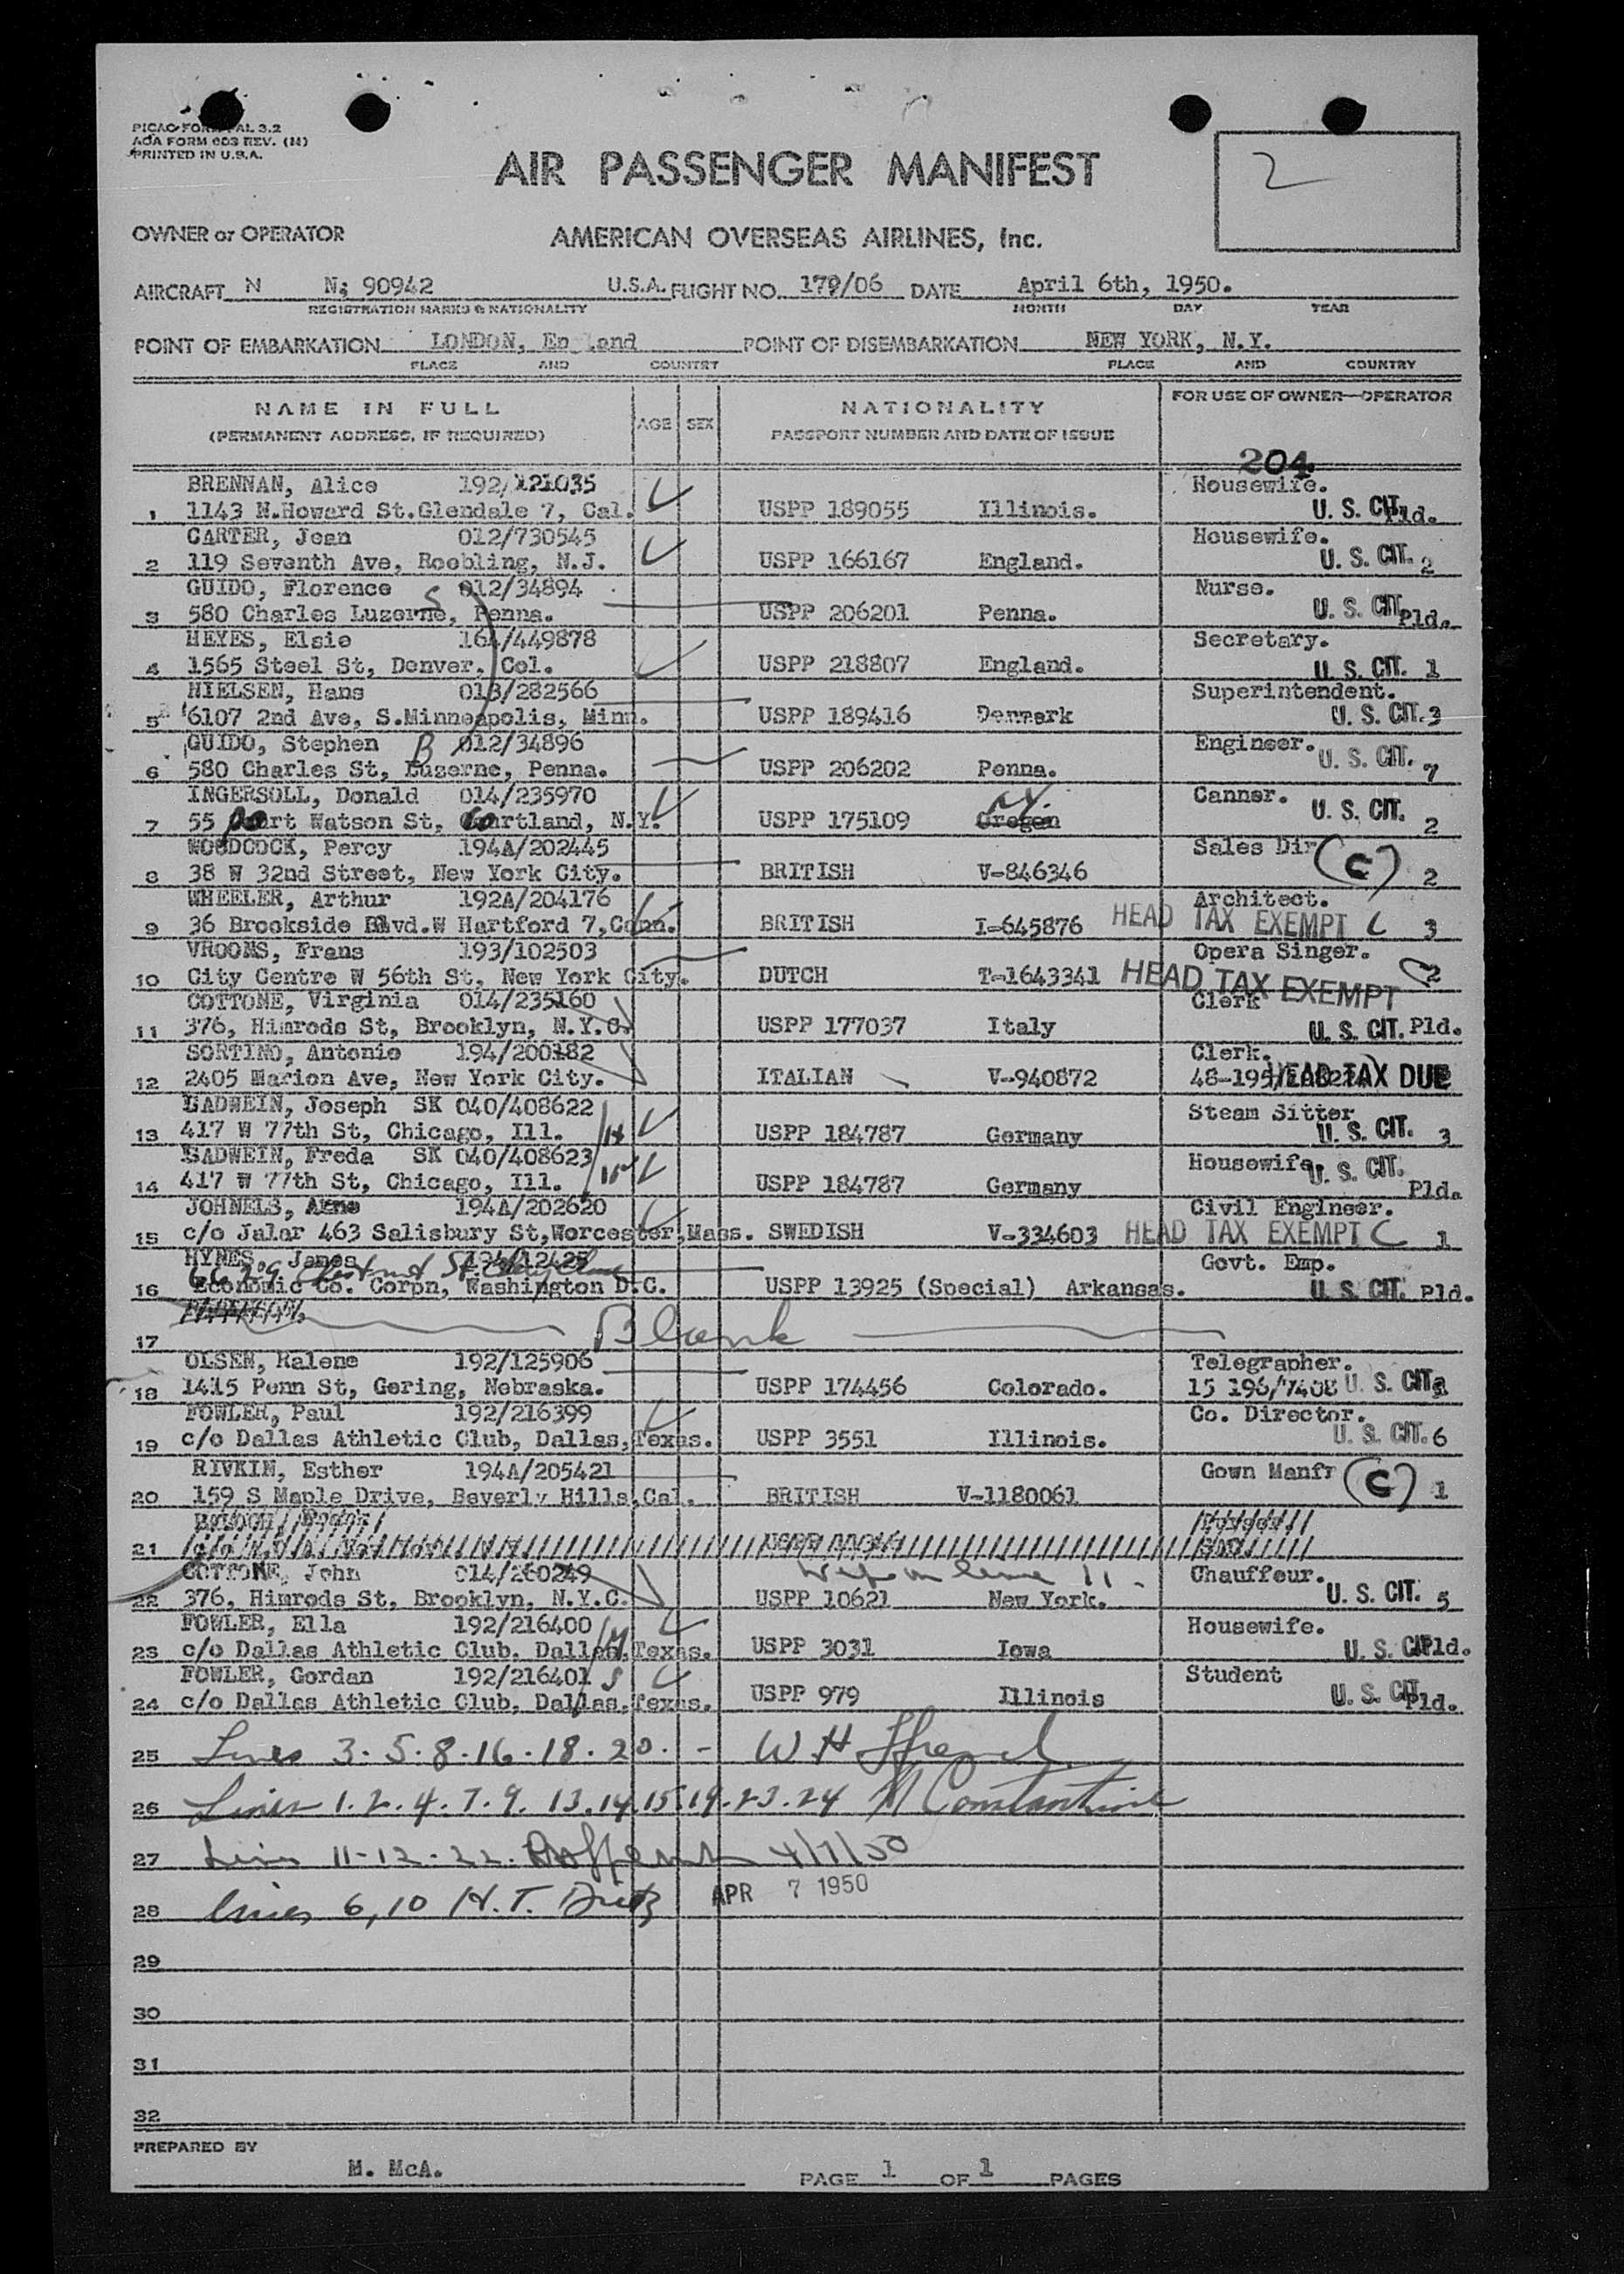 PICAO FORM PAL 3.2
AOA FORM 603 REV. (M)
PRINTED IN U.S.A.
2
AIR PASSENGER MANIFEST
OWNER or OPERATOR AMERICAN OVERSEAS AIRLINES, Inc.
AIRCRAFT N N; 90942 U.S.A. FLIGHT NO. 170/06 DATE April 6th, 1950.
REGISTRATION MARKS & NATIONALITY MONTH DAY YEAR
POINT OF EMBARKATION LONDON, England POINT OF DISEMBARKATION NEW YORK, N.Y.
PLACE AND COUNTRY PLACE AND COUNTRY
NAME IN FULL AGE SEX NATIONALITY FOR USE OF OWNER—OPERATOR
(PERMANENT ADDRESS, IF REQUIRED) PASSPORT NUMBER AND DATE OF ISSUE
204
BRENNAN, Alice 192/121035 Housewife.
1 1143 N.Howard St.Glendale 7, Cal. USPP 189055 Illinois. U. S. CIT. Pld.
CARTER, Jean 012/730545 Housewife.
2 119 Seventh Ave, Roebling, N.J. USPP 166167 England. U. S. CIT. 2
GUIDO, Florence 012/34894 Nurse.
3 580 Charles Luzerne, Penna. S USPP 206201 Penna. U. S. CIT. Pld.
HEYES, Elsie 164/449878 Secretary.
4 1565 Steel St, Denver, Col. USPP 218807 England. U. S. CIT. 1
NIELSEN, Hans 013/282566 Superintendent.
5 6107 2nd Ave, S.Minneapolis, Minn. USPP 189416 Denmark U. S. CIT. 3
GUIDO, Stephen B 012/34896 Engineer.
6 580 Charles St, Luzerne, Penna. USPP 206202 Penna. U. S. CIT. 7
INGERSOLL, Donald 014/235970 N.Y. Canner.
7 55 Port Watson St, Cortland, N.Y. USPP 175109 Oregon U. S. CIT. 2
WOODCOCK, Percy 194A/202445 Sales Dir
8 38 W 32nd Street, New York City. BRITISH V-846346 (C) 2
WHEELER, Arthur 192A/204176 Architect.
9 36 Brookside Blvd.W Hartford 7,Conn. BRITISH I-645876 HEAD TAX EXEMPT C 3
VROOMS, Frans 193/102503 Opera Singer.
10 City Centre W 56th St, New York City. DUTCH T-1643341 HEAD TAX EXEMPT C 2
COTTONE, Virginia 014/235160 Clerk
11 376, Himrods St, Brooklyn, N.Y.C. USPP 177037 Italy U. S. CIT. Pld.
SORTINO, Antonio 194/200182 Clerk.
12 2405 Marion Ave, New York City. ITALIAN V-940872 HEAD TAX DUE
LADWEIN, Joseph SK 040/408622 Steam Sitter
13 417 W 77th St, Chicago, Ill. H USPP 184787 Germany U. S. CIT. 3
LADWEIN, Freda SK 040/408623 Housewife.
14 417 W 77th St, Chicago, Ill. W USPP 184787 Germany U. S. CIT. Pld.
JOHNELS, Arne 194A/202620 Civil Engineer.
15 c/o Jalar 463 Salisbury St,Worcester,Mass. SWEDISH V-334603 HEAD TAX EXEMPT C 1
HYNES, James Govt. Emp.
16 Economic Co. Corpn, Washington D.C. USPP 13925 (Special) Arkansas. U. S. CIT. Pld.
17 Blank
OLSEN, Ralene 192/125906 Telegrapher.
18 1415 Penn St, Gering, Nebraska. USPP 174456 Colorado. 15 196/7408 U. S. CIT.
FOWLER, Paul 192/216399 Co. Director.
19 c/o Dallas Athletic Club, Dallas,Texas. USPP 3551 Illinois. U. S. CIT. 6
RIVKIN, Esther 194A/205421 Gown Manfr
20 159 S Maple Drive, Beverly Hills,Cal. BRITISH V-1180061 (C) 1
21
COTTONE, John 014/260249 Wife on line 11. Chauffeur.
22 376, Himrods St, Brooklyn, N.Y.C. USPP 10621 New York. U. S. CIT. 5
FOWLER, Ella 192/216400 Housewife.
23 c/o Dallas Athletic Club, Dallas,Texas. USPP 3031 Iowa U. S. CIT. Pld.
FOWLER, Gordan 192/216401 S Student
24 c/o Dallas Athletic Club, Dallas,Texas. USPP 979 Illinois U. S. CIT. Pld.
25 Lines 3.5.8.16.18.20. - W H
26 Lines 1.2.4.7.9.13.14.15.19.23.24 M Constantine
27 Lines 11-12-22. 4/7/50
28 lines 6,10 H.T. APR 7 1950
29
30
31
32
PREPARED BY
M. McA. PAGE 1 OF 1 PAGES